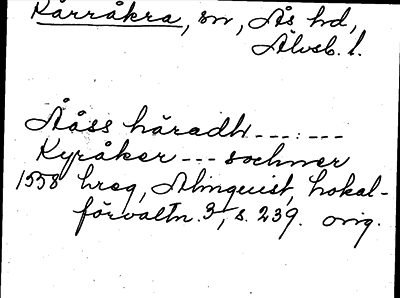 Kärråkra, sn, Ås hd,
Älvsb. l.
Ååss häradh ---:---
Kyråker --- sochner
1558 hreg, Almquist, Lokal-
förvaltn. 3, s. 239. orig.